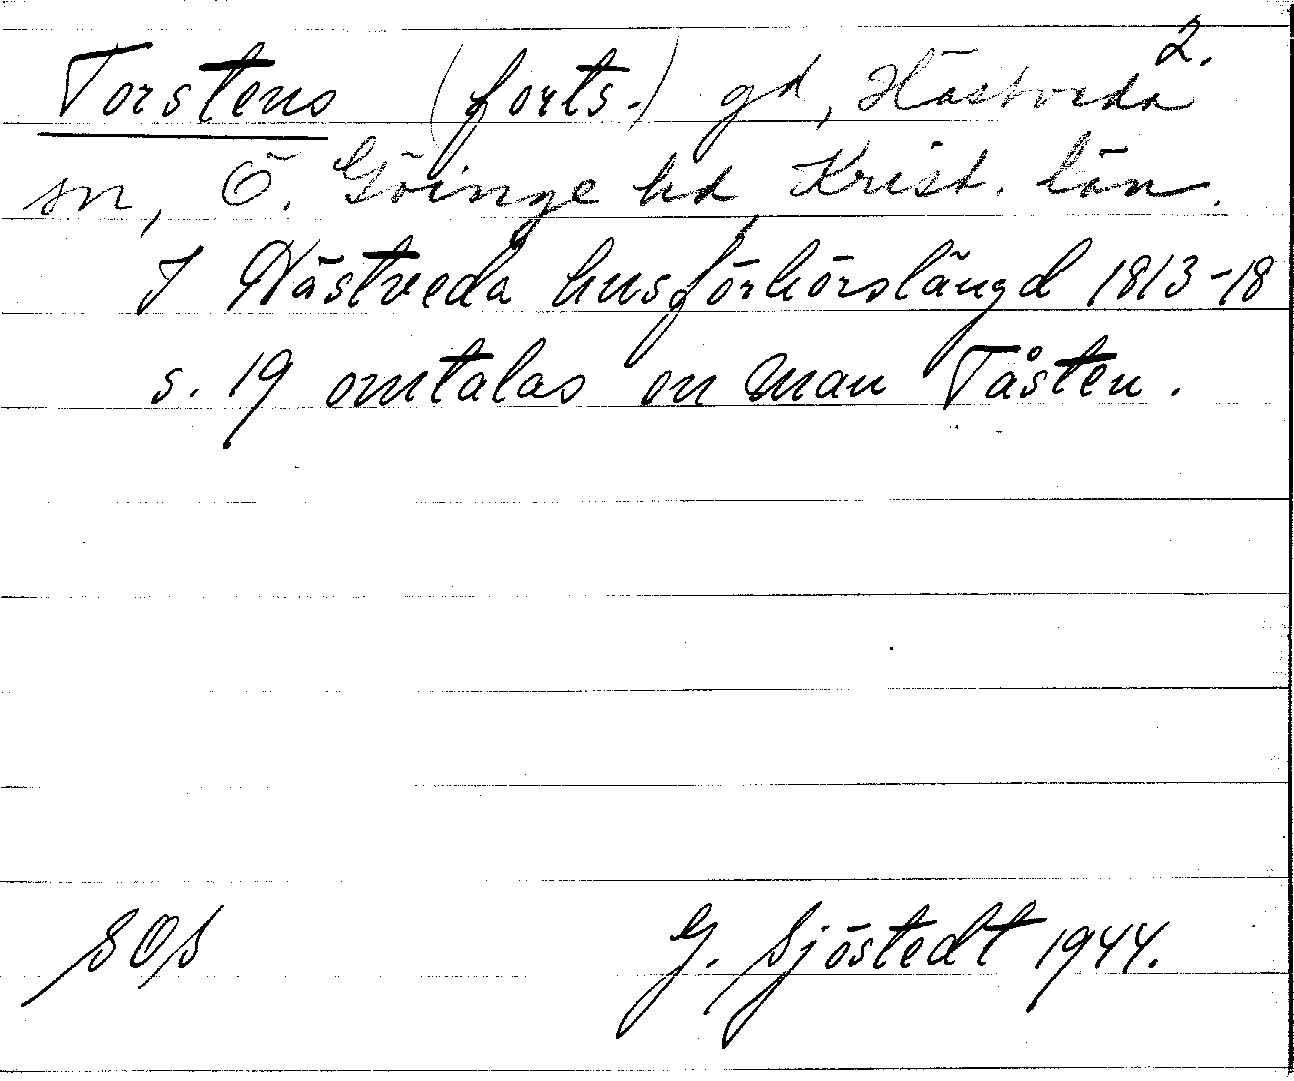 2.
Torstens (forts.) gd, Hästveda
sn, Ö. Göinge hd, Krist. län.
I Hästveda husförhörslängd 1813-18
s. 19 omtalas en man Tåsten.
SOS G. Sjöstedt 1944.